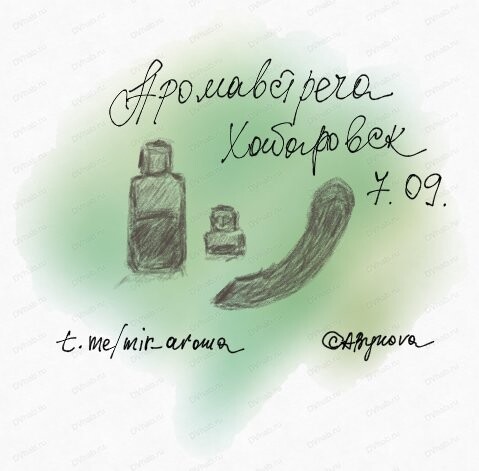 Аромавстреча
Хабаровск
7.09.
t.me/mir_aroma